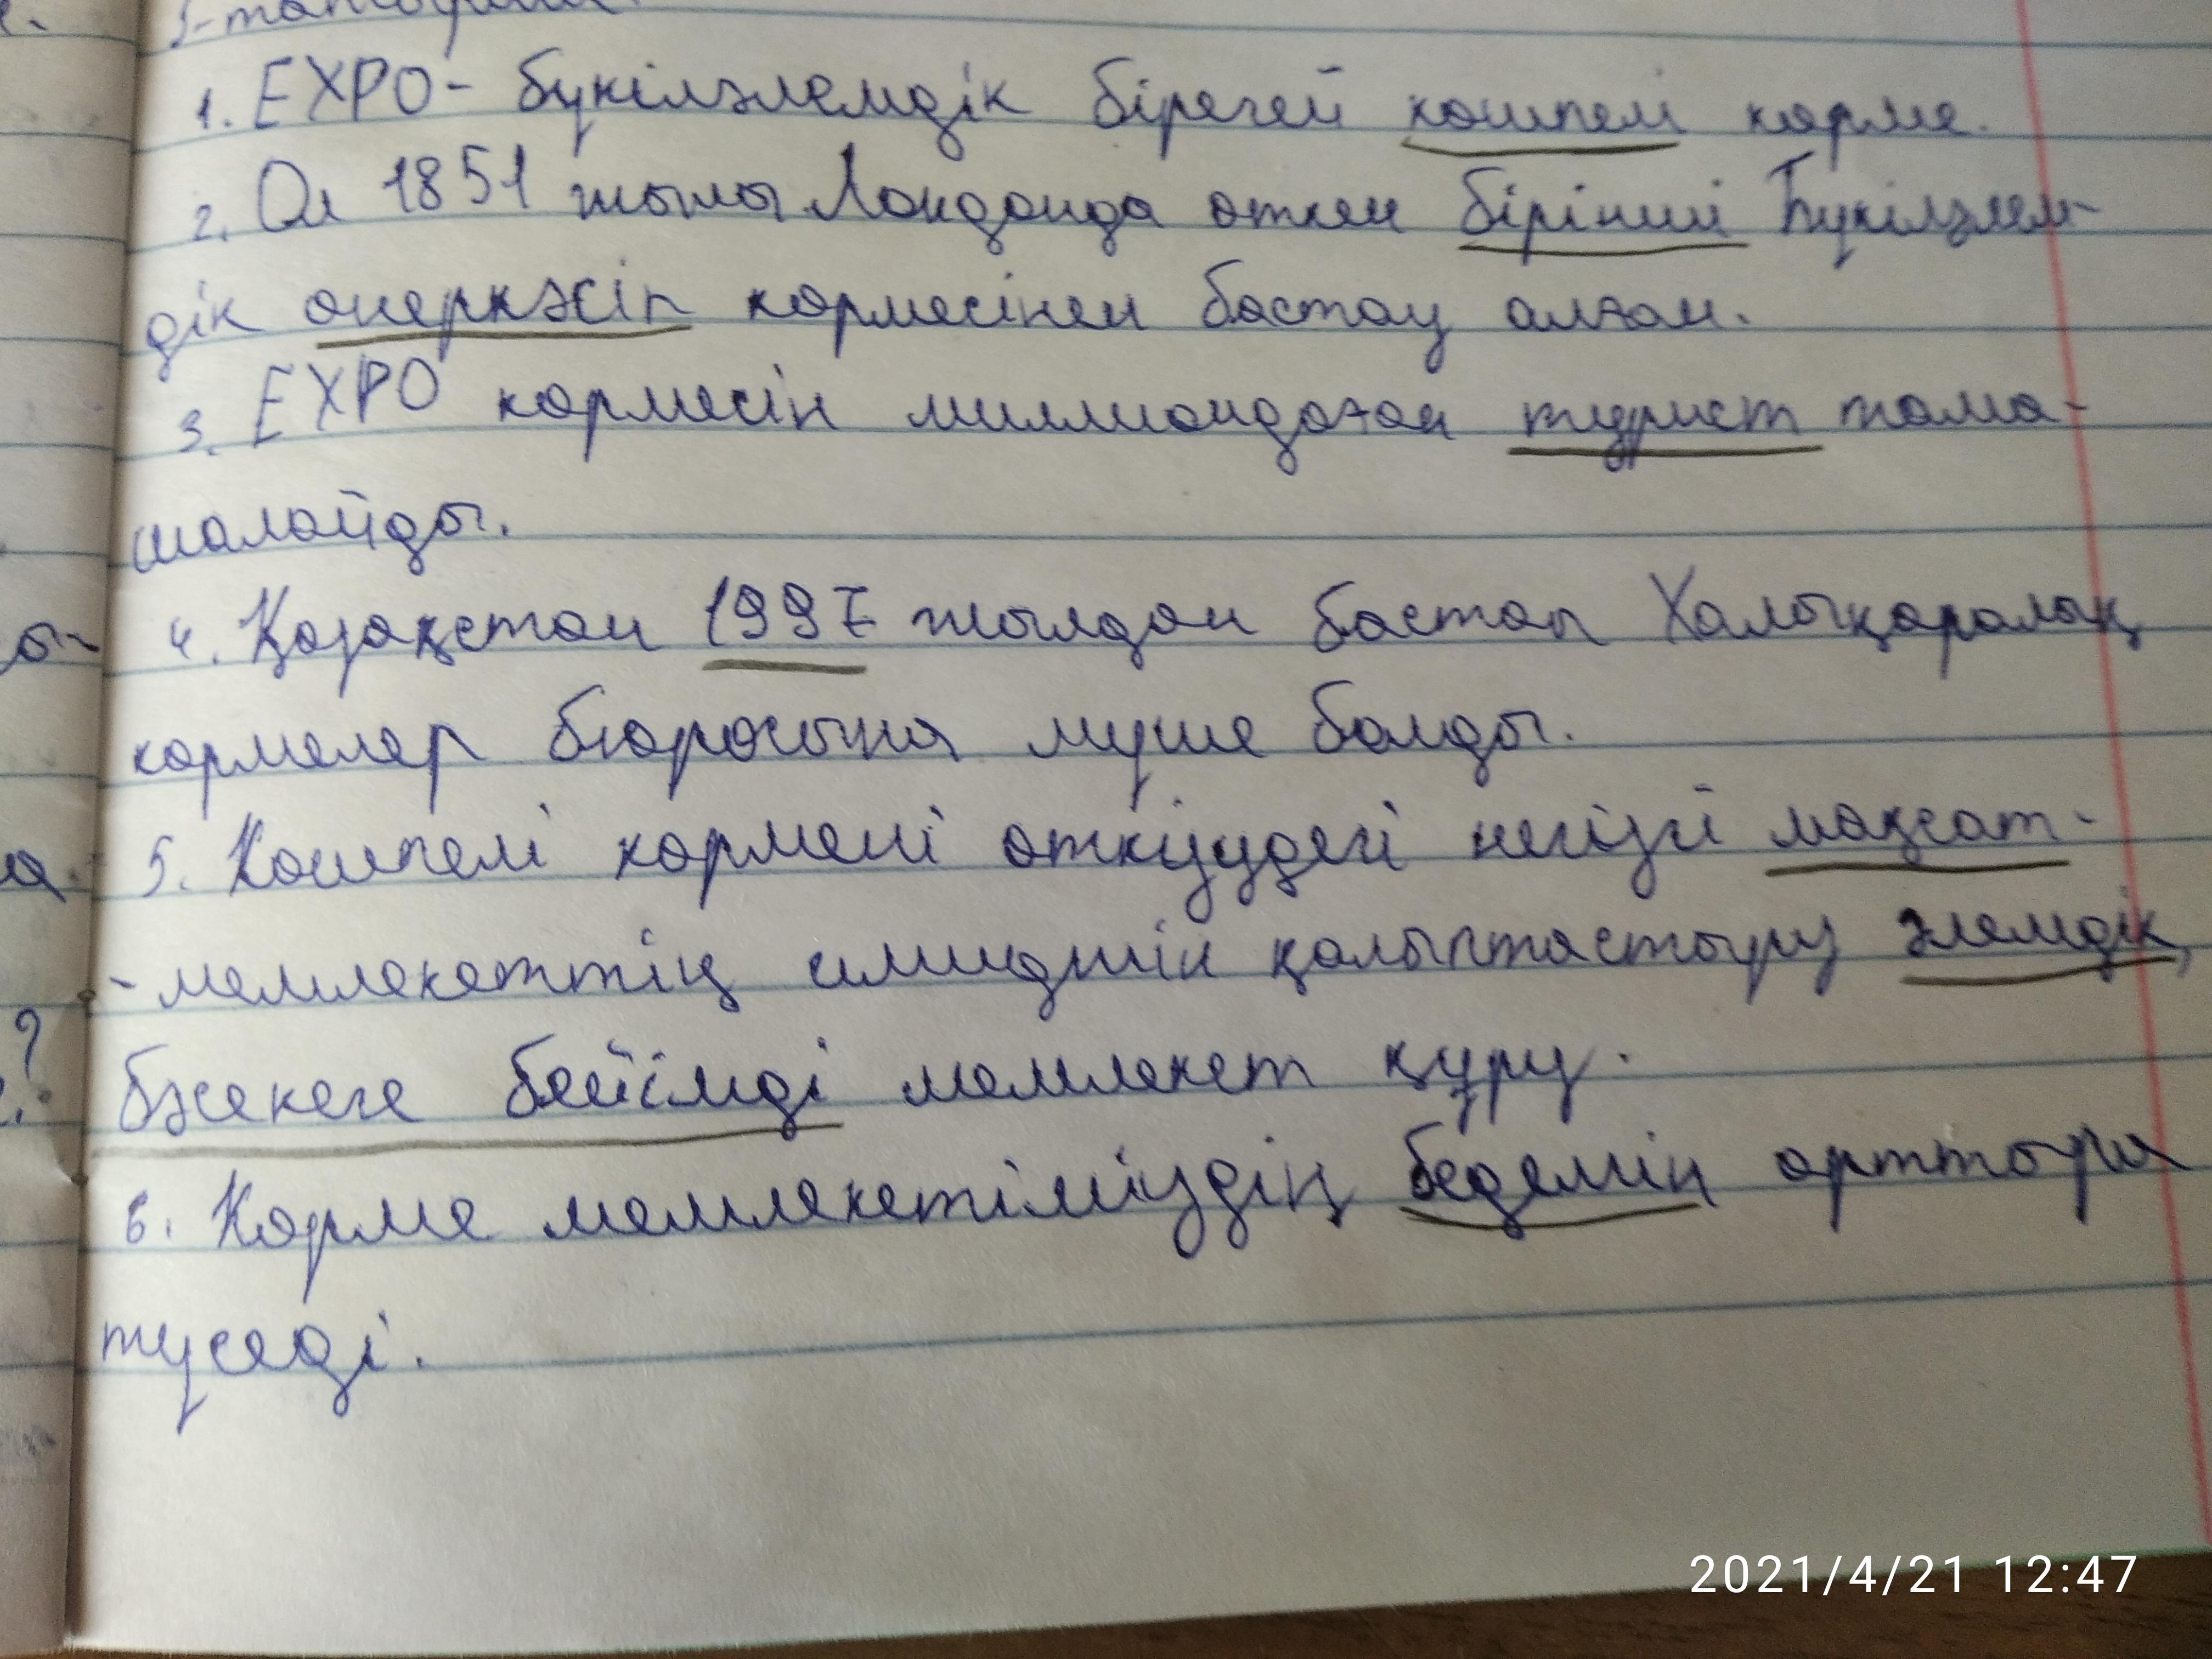 1. EXPO - бүкіләлемдік бірегей көшпелі көрме.
2. Ол 1851 жылы Лондонда өткен бірінші Бүкіләлем-
дік өнеркәсіп көрмесінен бастау алған.
3. EXPO көрмесін миллиондаған турист тама-
шалайды.
4. Қазақстан 1997 жылдан бастап Халықаралық
көрмелер бюросына мүше болды.
5. Көшпелі көрмені өткізудегі негізгі мақсат -
- мемлекеттің имиджін қалыптастыру әлемдік,
бәсекеге бейімді мемлекет құру.
6. Көрме мемлекетіміздің беделін арттыра
түседі.
2021/4/21 12:47